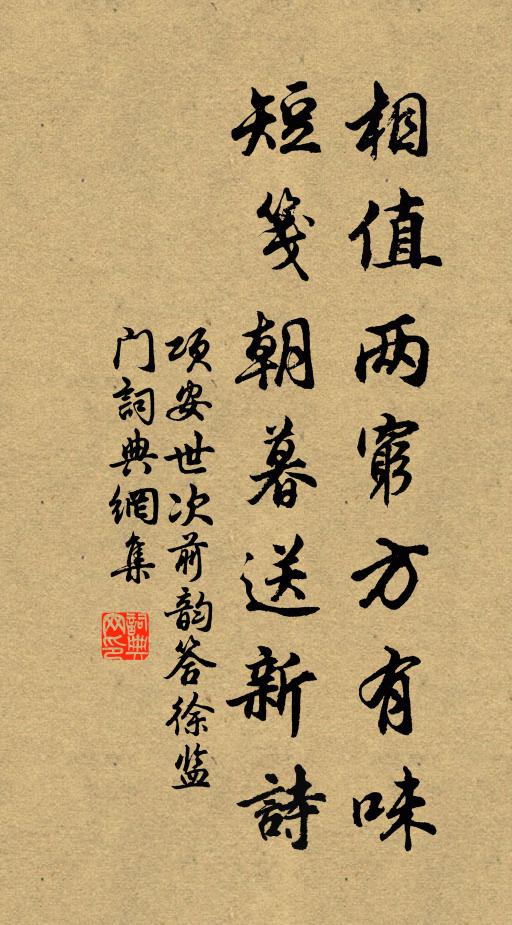 相值两窮方有味
短箋朝暮送新詩
项安世次前韵答徐监
门詞典網集
詞典
网印